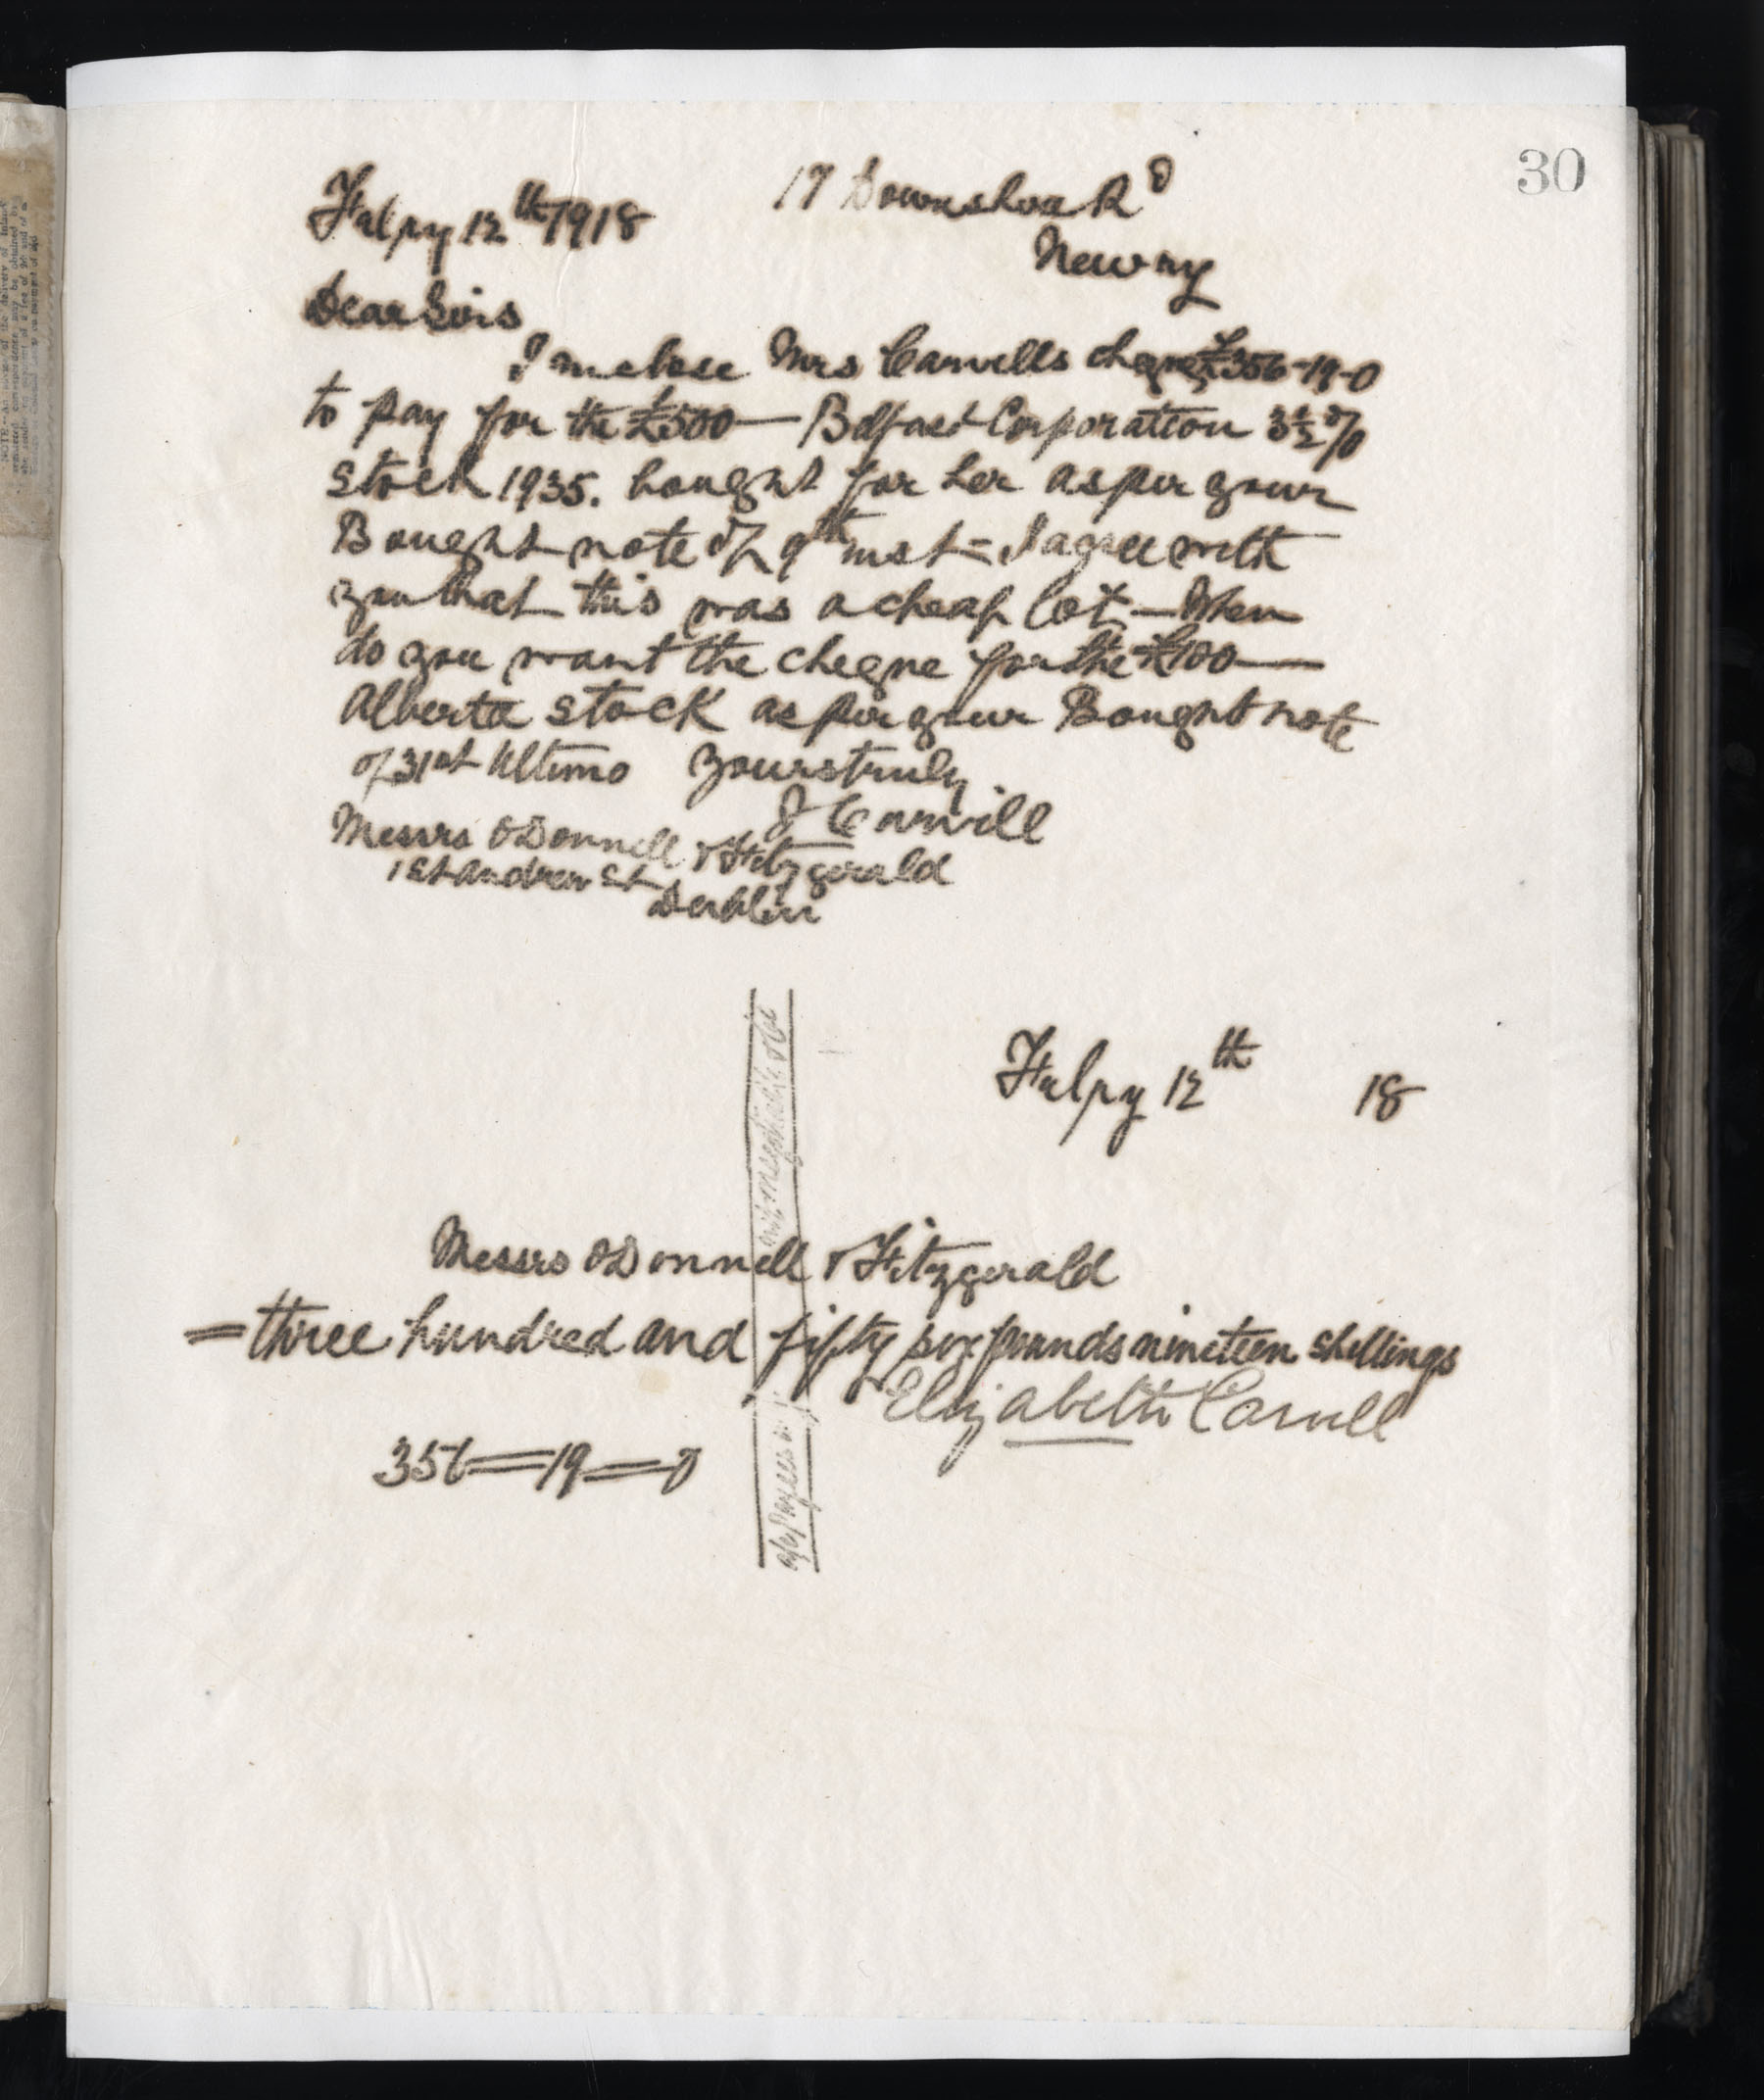 30
17 Downshire Rd
Febry 12th 1918
Newry
Dear Sirs
I inclose Mrs Carvills cheque £356-19-0
to pay for the £500— Belfast Corporation 3½%
Stock 1935. bought for her as per your
Bought note of 9th inst = I agree with
you that this was a cheap lot — When
do you want the cheque for the £100—
Alberta stock as per your Bought note
of 31st Ultimo Yours truly
J Carvill
Messrs ODonnell & Fitzgerald
1 St Andrew St
Dublin
Febry 12th 18
not negotiable
Messrs ODonnell & Fitzgerald
= three hundred and fifty six pounds nineteen shillings
Elizabeth Carvill
356=19=0
a/c Payees